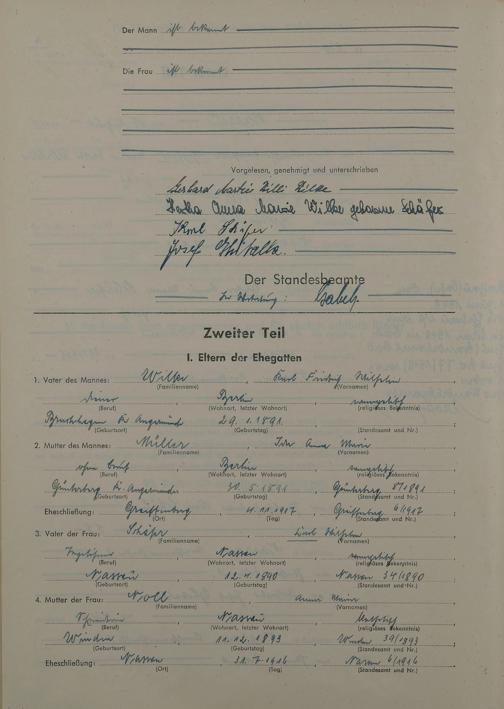 Der Mann ist bekannt
Die Frau ist bekannt
Vorgelesen, genehmigt und unterschrieben
Gerhard Martin Willi Wilke
Hertha Anna Marie Wilke geborene Schäfer
Karl Schäfer
Josef
Der Standesbeamte
In Vertretung:
Zweiter Teil
I. Eltern der Ehegatten
1. Vater des Mannes: Wilke, Karl Friedrich Wilhelm
(Familienname) (Vornamen)
Berlin, evangelisch
(Beruf) (Wohnort, letzter Wohnort) (religiöses Bekenntnis)
Kr. Angermünde 29.1.1891
(Geburtsort) (Geburtstag) (Standesamt und Nr.)
2. Mutter des Mannes: Müller, Ida Anna Marie
(Familienname) (Vornamen)
ohne Beruf, Berlin, evangelisch
(Beruf) (Wohnort, letzter Wohnort) (religiöses Bekenntnis)
Günterberg Kr. Angermünde 30.5.1891, Günterberg 8/1891
(Geburtsort) (Geburtstag) (Standesamt und Nr.)
Eheschließung: Greiffenberg, 4.11.1917, Greiffenberg 6/1917
(Ort) (Tag) (Standesamt und Nr.)
3. Vater der Frau: Schäfer, Karl Wilhelm
(Familienname) (Vornamen)
Nassau, evangelisch
(Beruf) (Wohnort, letzter Wohnort) (religiöses Bekenntnis)
Nassau, 12.4.1890, Nassau 34/1890
(Geburtsort) (Geburtstag) (Standesamt und Nr.)
4. Mutter der Frau: Noll, Anna Maria
(Familienname) (Vornamen)
Nassau, katholisch
(Beruf) (Wohnort, letzter Wohnort) (religiöses Bekenntnis)
Winden, 11.12.1893, Winden 39/1893
(Geburtsort) (Geburtstag) (Standesamt und Nr.)
Eheschließung: Nassau, 31.7.1916, Nassau 6/1916
(Ort) (Tag) (Standesamt und Nr.)